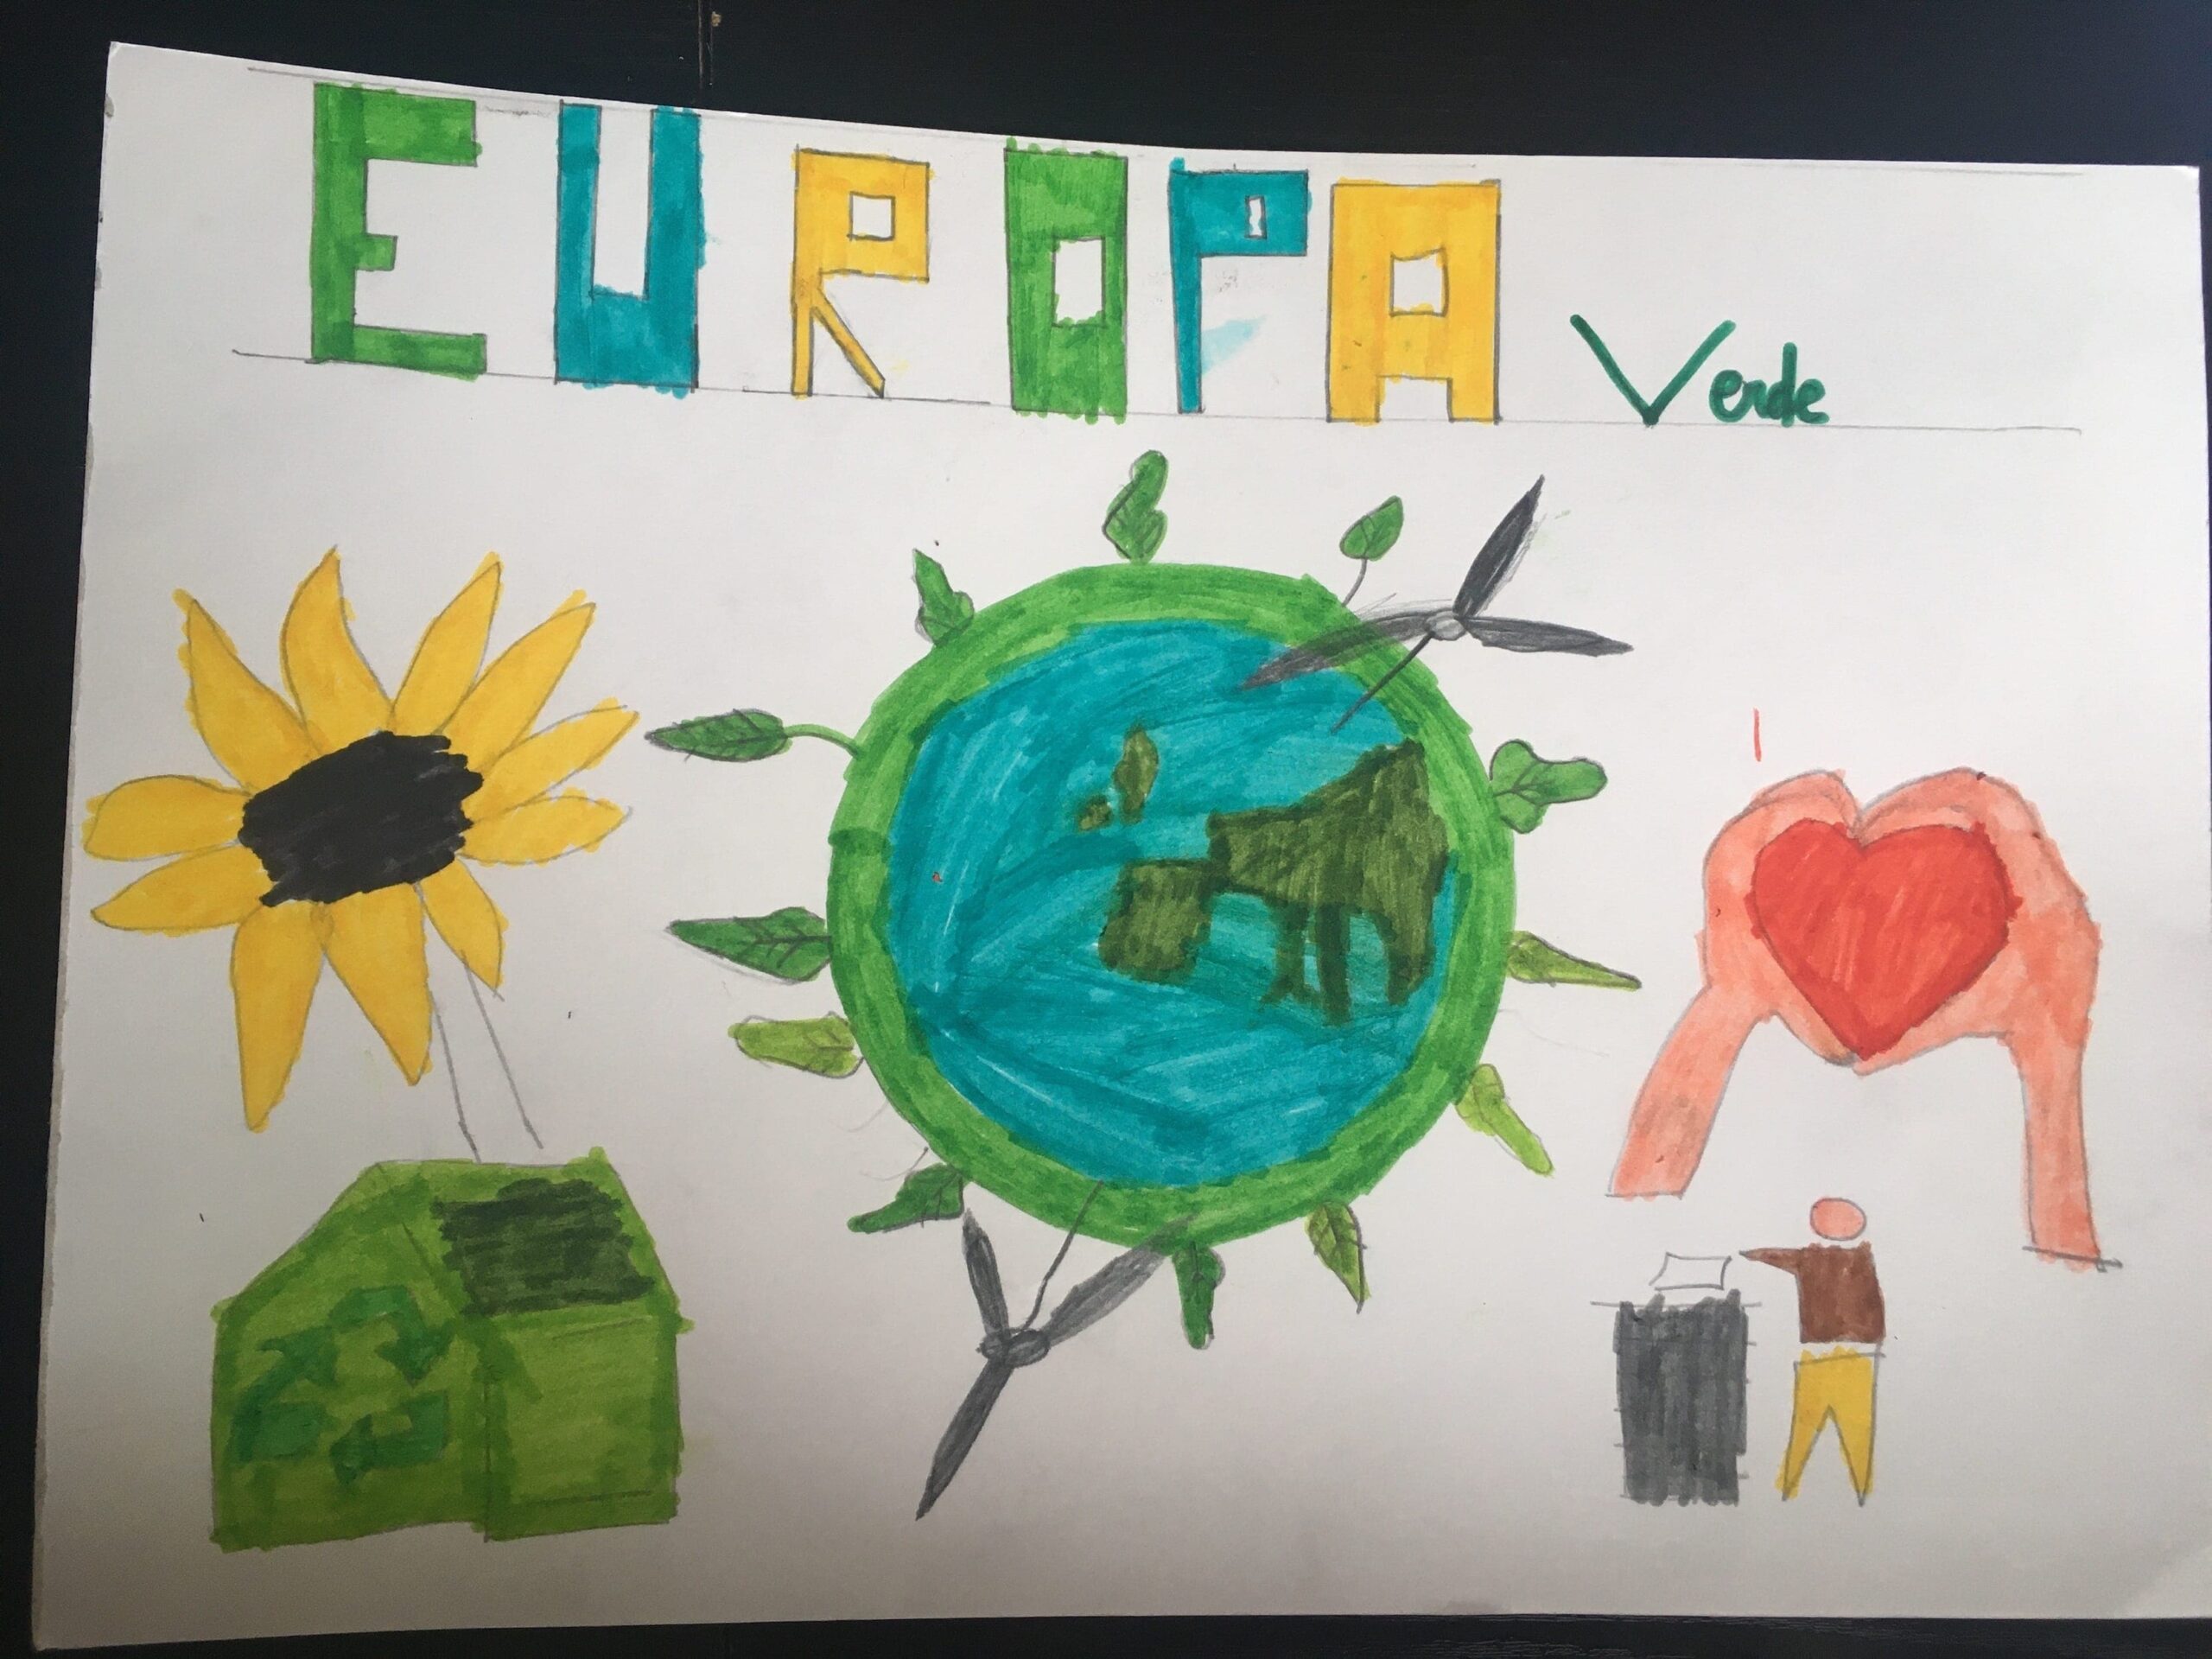 EUROPA Verde